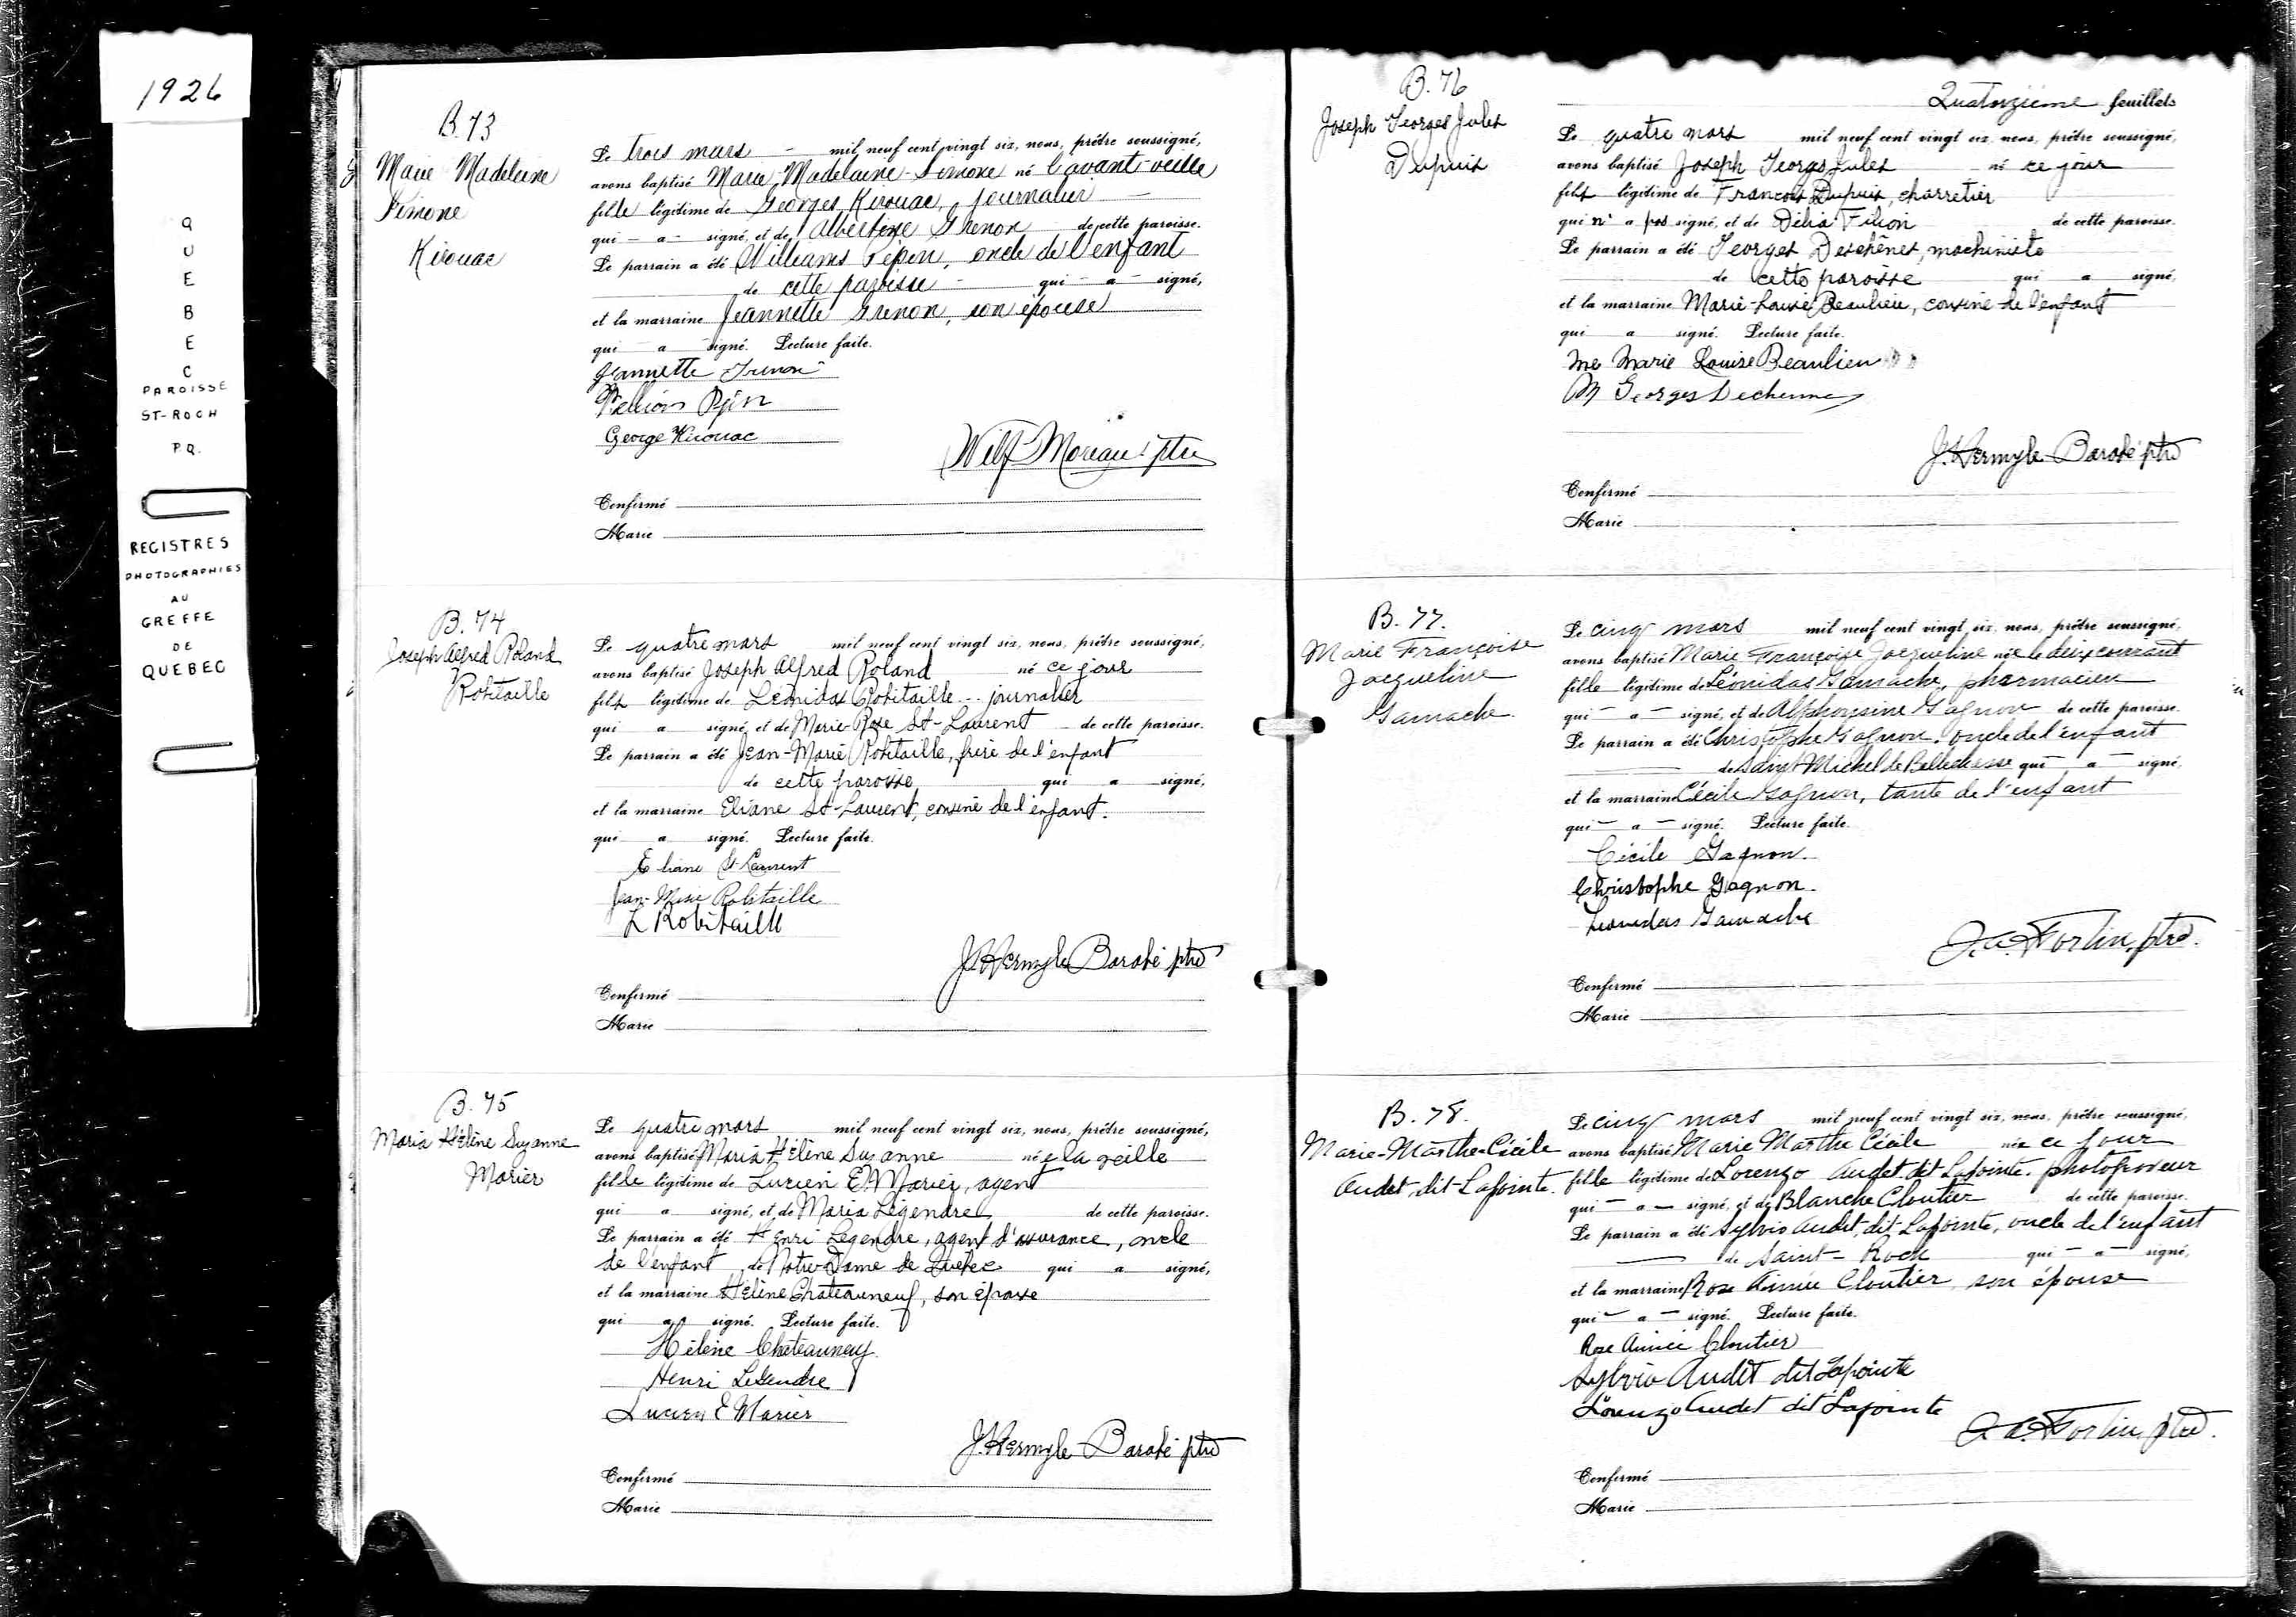 1926
QUEBEC
PAROISSE
ST-ROCH
P.Q.
REGISTRES
PHOTOGRAPHIES
AU
GREFFE
DE
QUEBEC
B.73
Marie Madeleine
Simone
Kirouac
Le trois mars - mil neuf cent vingt six, nous, prêtre soussigné,
avons baptisé Marie-Madeleine-Simone né l'avant-veille
fille légitime de Georges Kirouac, journalier
qui - a - signé, et de Albertine Grenon de cette paroisse.
Le parrain a été Williams Pépin, oncle de l'enfant
de cette paroisse - qui - a - signé,
et la marraine Jeannette Grenon, son épouse
qui - a signé. Lecture faite.
Jeannette Grenon
Pépin
George Kirouac
Wilf Moreau ptre
Confirmé
Marie
B. 74
Joseph Alfred Roland
Robitaille
Le quatre mars mil neuf cent vingt six, nous, prêtre soussigné,
avons baptisé Joseph Alfred Roland né ce jour
fils légitime de Léonidas Robitaille - journalier
qui a signé, et de Marie-Rose St-Laurent de cette paroisse.
Le parrain a été Jean-Marie Robitaille, frère de l'enfant
de cette paroisse qui a signé,
et la marraine Eliane St-Laurent, cousine de l'enfant.
qui a signé. Lecture faite.
Eliane St-Laurent
Jean-Marie Robitaille
L Robitaille
J. Hermyle Barabé ptre
Confirmé
Marie
B. 75
Maria Hélène Suzanne
Marier
Le quatre mars mil neuf cent vingt six, nous, prêtre soussigné,
avons baptisé Maria Hélène Suzanne née la veille
fille légitime de Lucien E. Marier, agent
qui a signé, et de Maria Légendre de cette paroisse.
Le parrain a été Henri Légendre, agent d'assurance, oncle
de l'enfant de Notre-Dame de Québec qui a signé,
et la marraine Hélène Chateauneuf, son épouse
qui a signé. Lecture faite.
Hélène Chateauneuf
Henri Legendre
Lucien E Marier
J. Hermyle Barabé ptre
Confirmé
Marie
Quatorzième feuillets
B. 76
Joseph Georges Jules
Dupuis
Le quatre mars mil neuf cent vingt six, nous, prêtre soussigné,
avons baptisé Joseph Georges Jules né ce jour
fils légitime de François Dupuis, charretier
qui n' a pas signé, et de Délia Filion de cette paroisse.
Le parrain a été Georges Deschênes, machiniste
de cette paroisse qui a signé,
et la marraine Marie-Louise Beaulieu, cousine de l'enfant
qui a signé. Lecture faite.
Me Marie Louise Beaulieu
M Georges Dechenne
J. Hermyle Barabé ptre
Confirmé
Marie
B. 77.
Marie Françoise
Jacqueline
Gamache.
Le cinq mars mil neuf cent vingt six, nous, prêtre soussigné,
avons baptisé Marie Françoise Jacqueline née le deux courant
fille légitime de Léonidas Gamache, pharmacien
qui - a - signé, et de Alphonsine Gagnon de cette paroisse.
Le parrain a été Christophe Gagnon, oncle de l'enfant
de Saint Michel de Bellechasse qui - a - signé,
et la marraine Cécile Gagnon, tante de l'enfant
qui - a - signé. Lecture faite.
Cécile Gagnon.
Christophe Gagnon.
Leonidas Gamache
J. A. Fortin, ptre.
Confirmé
Marie
B. 78.
Marie-Marthe-Cécile
Audet, dit-Lapointe.
Le cinq mars mil neuf cent vingt six, nous, prêtre soussigné,
avons baptisé Marie Marthe Cécile née ce jour
fille légitime de Lorenzo Audet, dit Lapointe, photograveur
qui - a - signé, et de Blanche Cloutier de cette paroisse.
Le parrain a été Sylvio Audet, dit Lapointe, oncle de l'enfant
de Saint-Roch qui - a - signé,
et la marraine Rose Aimée Cloutier, son épouse
qui - a - signé. Lecture faite.
Rose Aimée Cloutier
Sylvio Audet dit Lapointe
Lorenzo Audet dit Lapointe
J. A. Fortin, ptre.
Confirmé
Marie